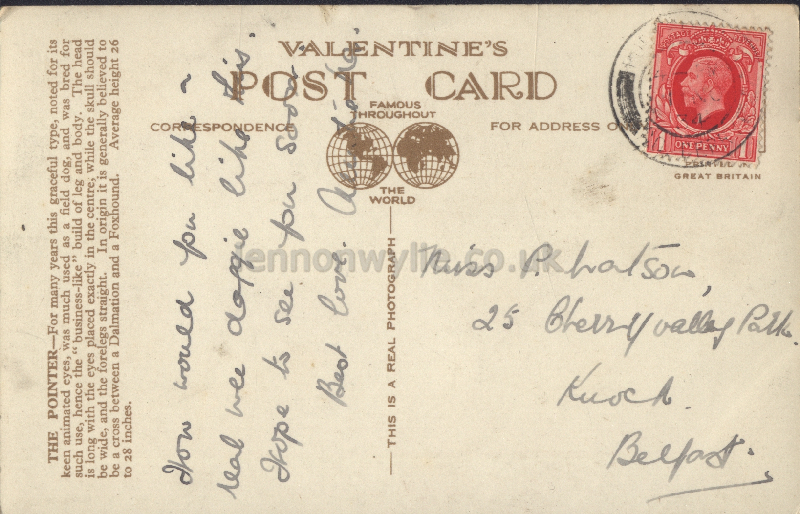 THE POINTER—For many years this graceful type, noted for its
keen animated eyes, was much used as a field dog, and was bred for
such use, hence the "business-like" build of leg and body. The head
is long with the eyes placed exactly in the centre, while the skull should
be wide, and the forelegs straight. In origin it is generally believed to
be a cross between a Dalmation and a Foxhound. Average height 26
to 28 inches.
VALENTINE'S
POST CARD
FAMOUS
THROUGHOUT
THE
WORLD
CORRESPONDENCE
FOR ADDRESS O
POSTAGE REVENUE
1 ONE PENNY 1
GREAT BRITAIN
THIS IS A REAL PHOTOGRAPH
How would you like a
real wee doggie like this.
Hope to see you soon.
Best love.
Miss P. Watson,
25 Cherryvalley Park
Knock
Belfast.
lennonwylie.co.uk